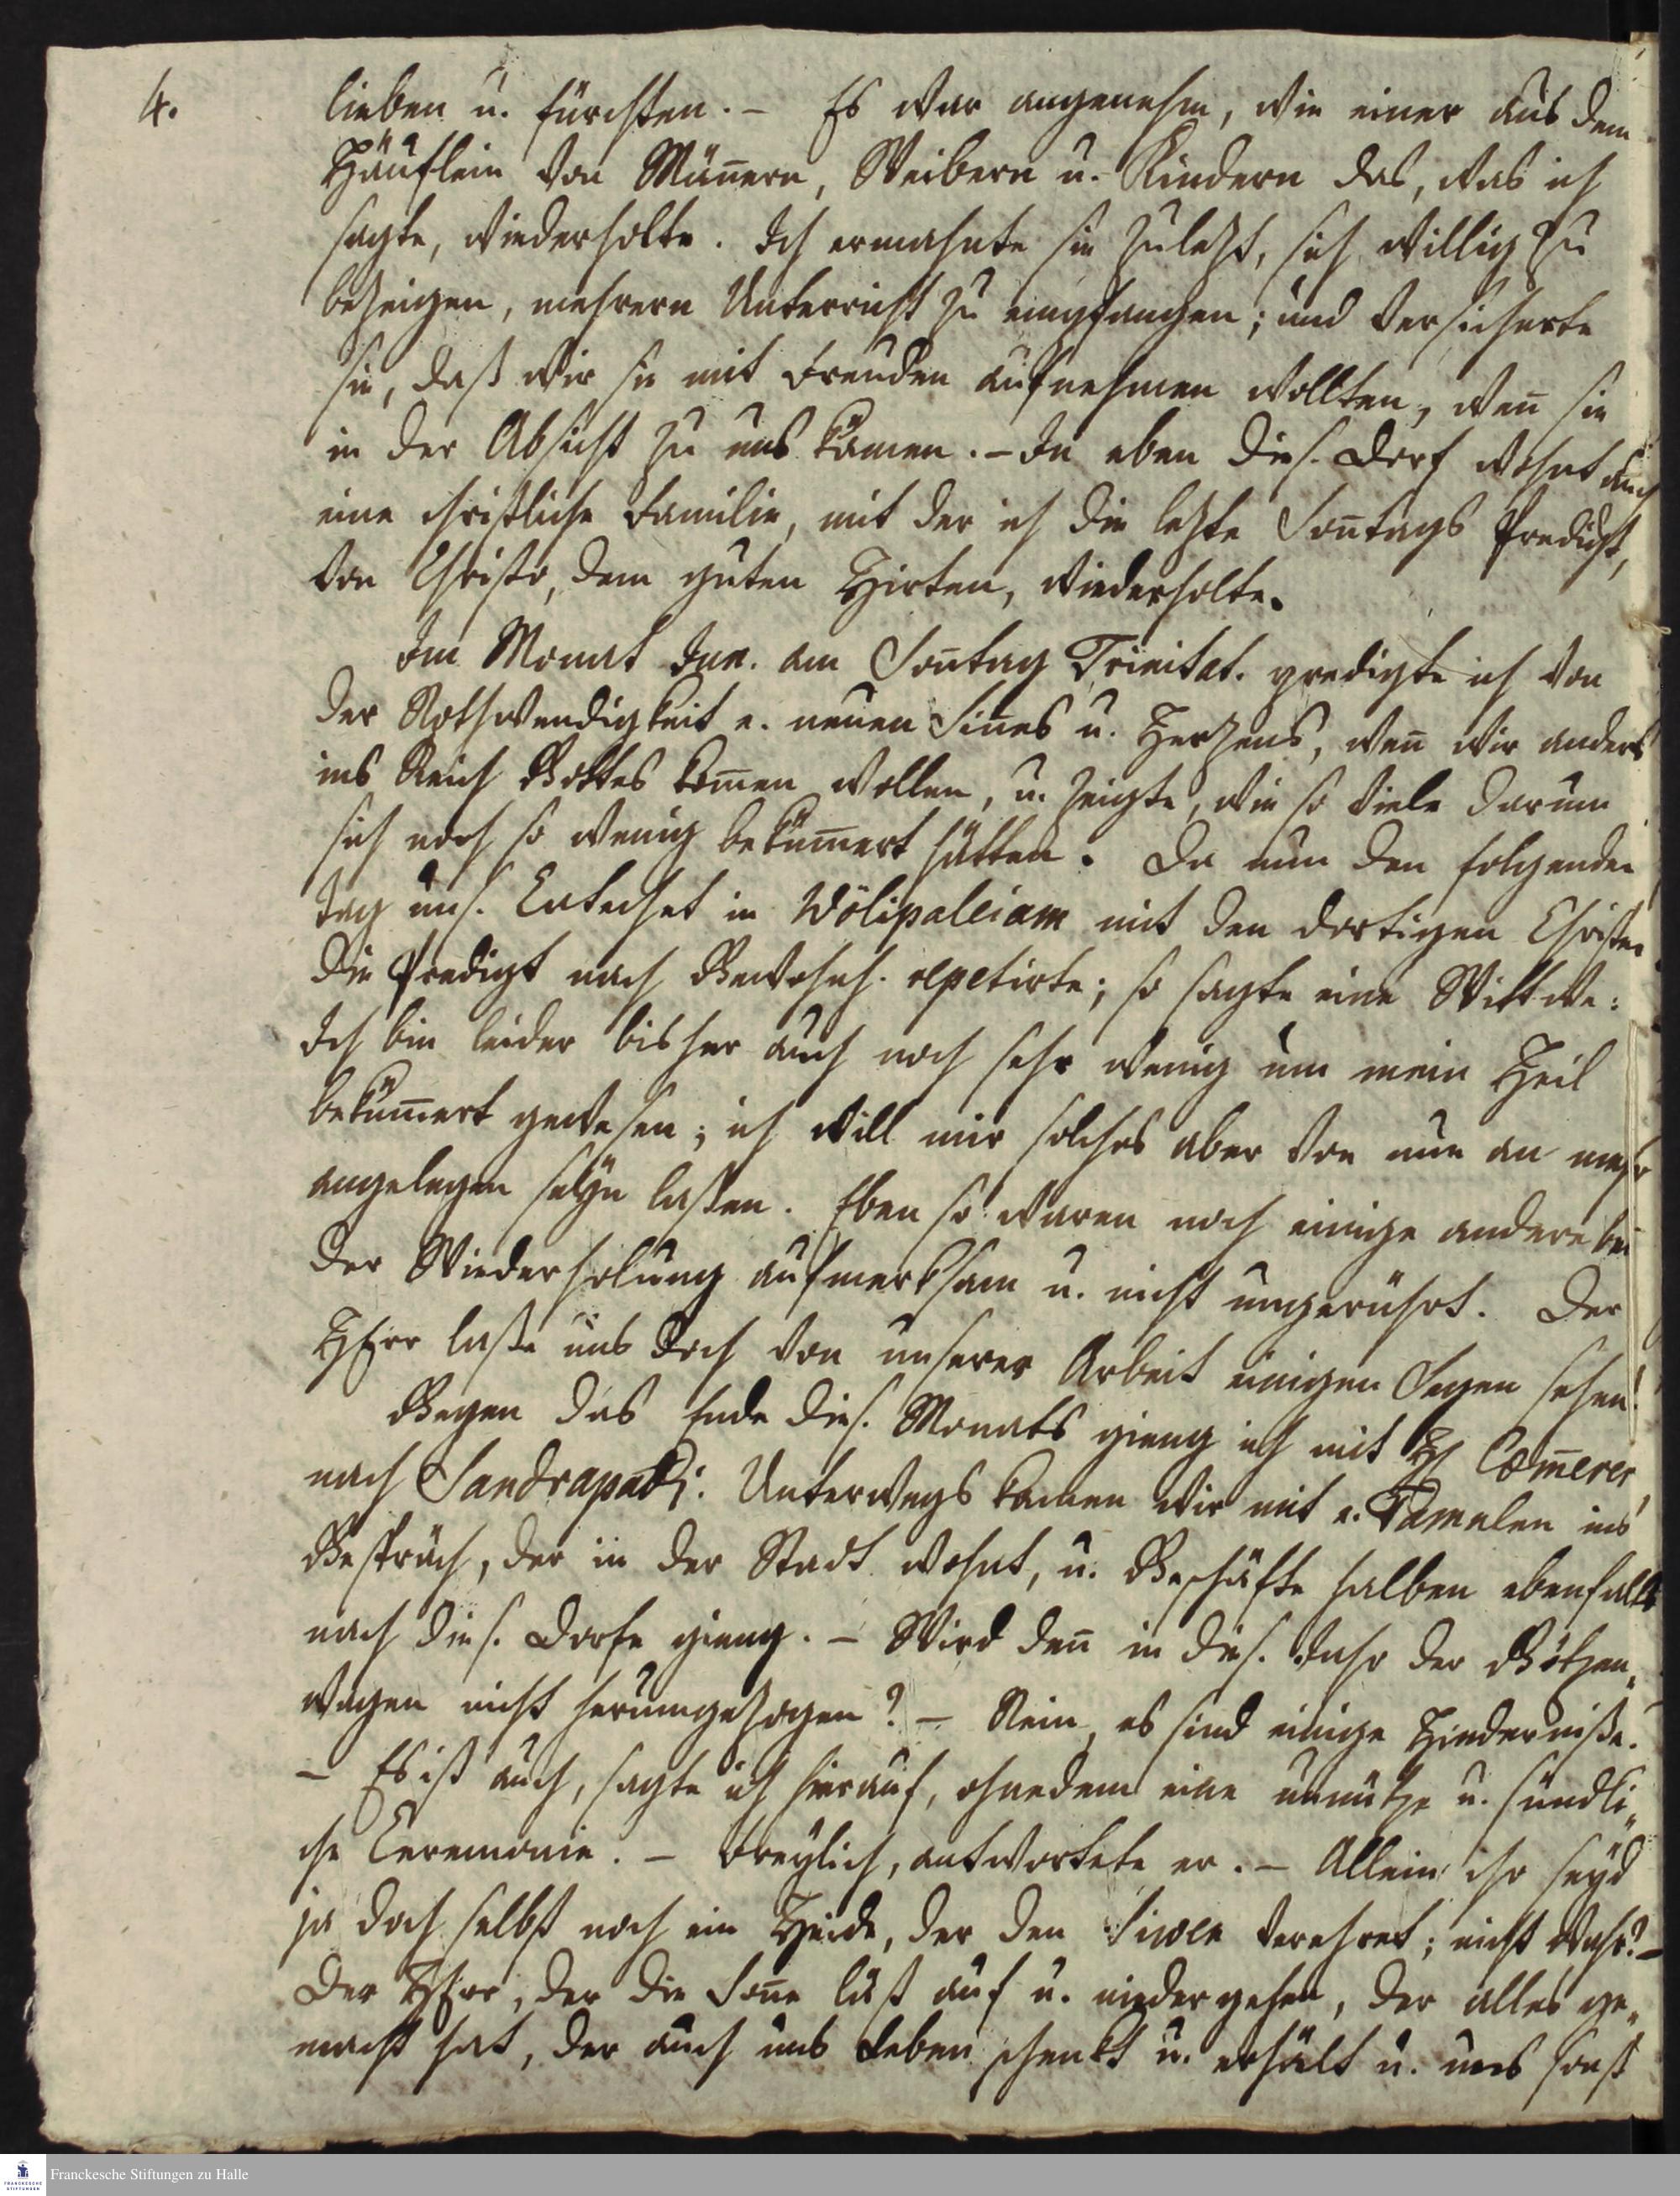 4.
lieben u. fürchten. – Es war angenehm, wie einer aus dem
Häuflein von Mañern, Weibern u. Kindern das, was ich
sagte, wiederholte. Ich ermahnte sie zulezt, sich willig zu
bezeigen, mehrern Unterricht zu empfangen; und versicherte
sie, daß wir sie mit Freuden aufnehmen wollten, weñ sie
in der Absicht zu uns kämen. – In eben dies. Dorf wohnt auch
eine christliche Familie, mit der ich die lezte Soñtags Predigt,
von Christo, dem guten Hirten, wiederholte.
Im Monat Jun. am Soñtag Trinitat. predigte ich von
der Nothwendigkeit e. neuen Siñes u. Herzens, weñ wir anders
ins Reich Gottes kom̄en wollen, u. zeigte, wie so viele darum
sich noch so wenig beküm̄ert hätten. Da nun den folgenden
Tag uns. Catechet in Wölipalleiam mit den dortigen Christen
die Predigt nach Gewohnh. repetirte; so sagte eine Wittwe:
Ich bin leider bisher auch noch sehr wenig um mein Heil
beküm̄ert gewesen; ich will mir solches aber von nun an mehr
angelegen seÿn laßen. Eben so waren noch einige andere bei
der Wiederholung aufmerksam u. nicht ungerührt. Der
HErr laße uns doch von unserer Arbeit einigen Segen sehen!
Gegen das Ende dies. Monats gieng ich mit H Com̄erer
nach Sandrapadi. Unterwegs kamen wir mit e. Tamulen ins
Gespräch, der in der Stadt wohnt, u. Geschäfte halben ebenfalls
nach dies. Dorfe gieng. – Wird deñ in dies. Jahr der Götzen„
wagen nicht herumgezogen? – Nein, es sind einige Hinderniße.
– Es ist auch, sagte ich hierauf, ohnedem eine unnütze u. sündli„
che Ceremonie. – Freÿlich, antwortete er. – Allein ihr seÿd
ja doch selbst noch ein Heide, der den Siwen verehret; nicht wahr? –
Der HErr, der die Soñe läßt auf u. niedergehen, der alles ge„
macht hat, der auch uns Leben schenkt u. erhält u. uns sonst
Franckesche Stiftungen zu Halle